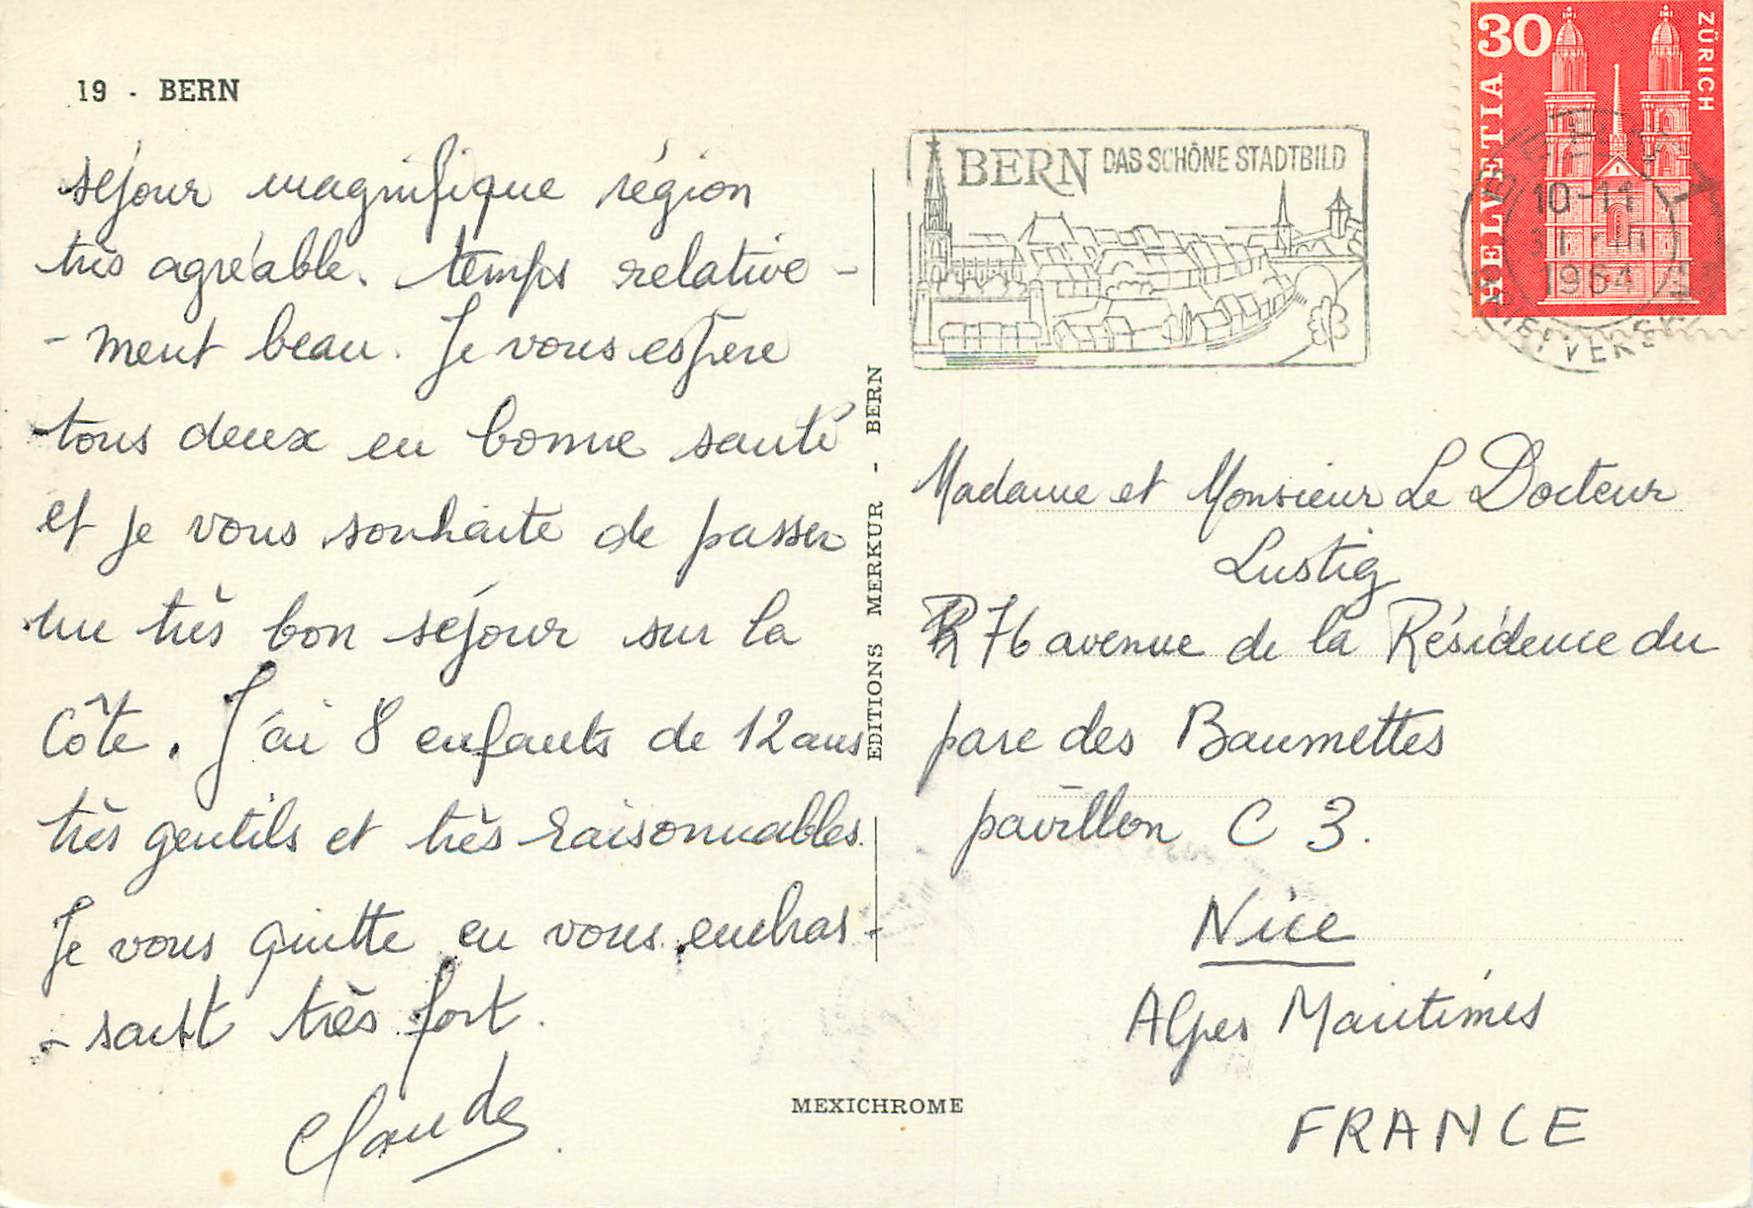 19 - BERN
séjour magnifique région
très agréable. temps relative -
- ment beau. Je vous espère
tous deux en bonne santé
et je vous souhaite de passer
un très bon séjour sur la
Côte. J'ai 8 enfants de 12 ans
très gentils et très raisonnables.
Je vous quitte en vous embras -
- sant très fort.
Claude
EDITIONS MERKUR - BERN
MEXICHROME
BERN DAS SCHÖNE STADTBILD
30
HELVETIA
ZÜRICH
10-11
1964
Madame et Monsieur Le Docteur
Lustig
76 avenue de la Résidence du
parc des Baumettes
pavillon C 3.
Nice
Alpes Maritimes
FRANCE